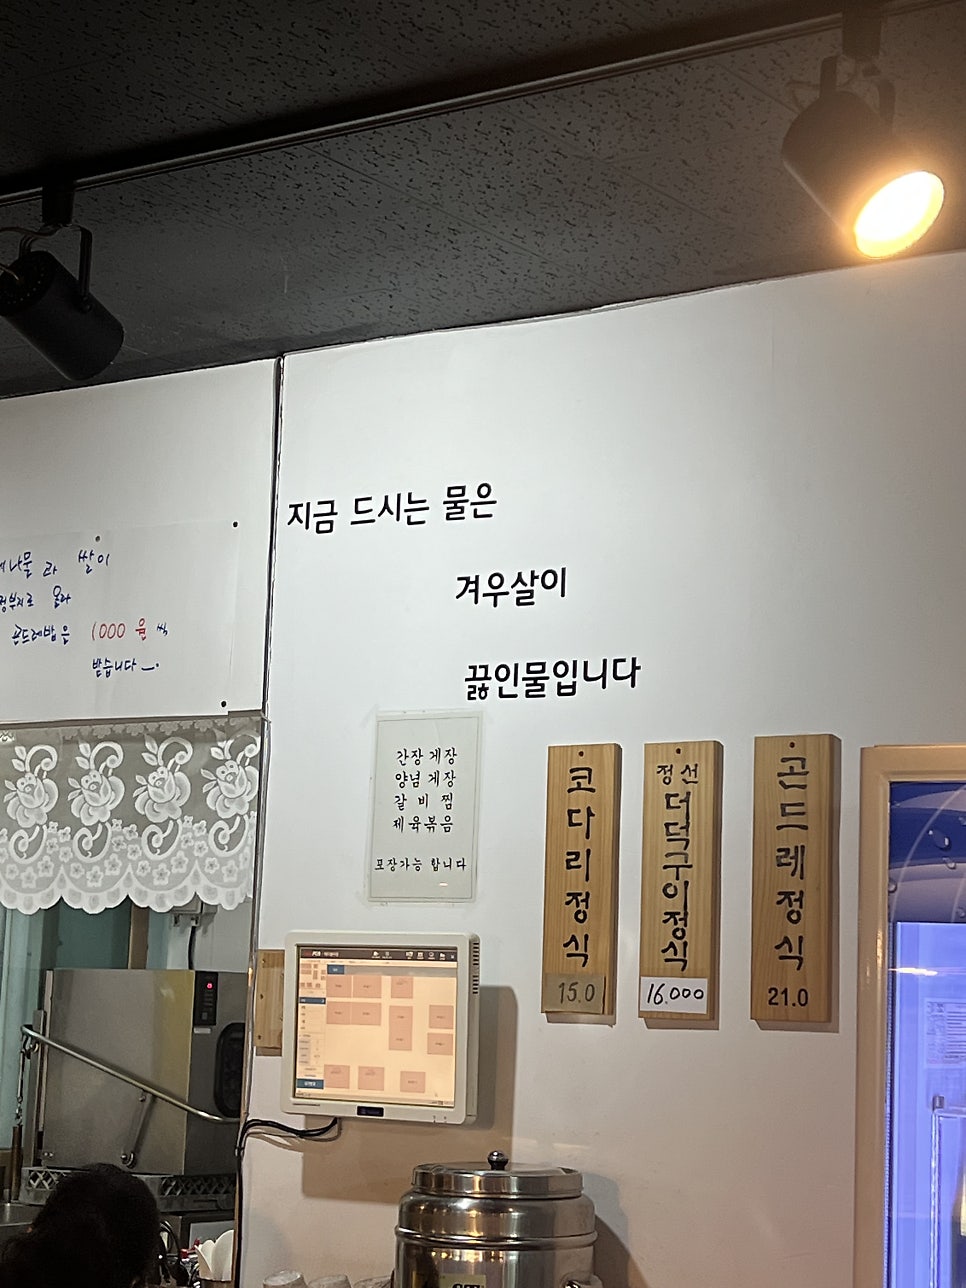 지금 드시는 물은
겨우살이
끓인물입니다
나물 과 쌀이
올라
곤드레밥은 1000 원 씩
받습니다
간장 게장
양념 게장
갈 비 찜
제육볶음
포장가능 합니다
코다리정식
15.0
정선
더덕구이정식
16.000
곤드레정식
21.0